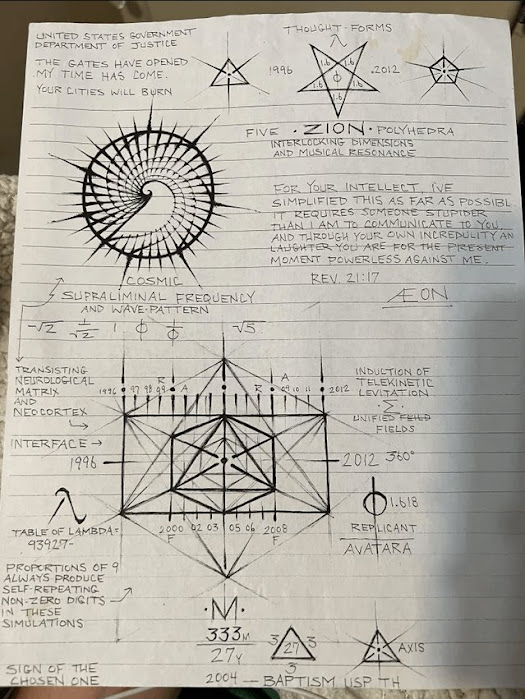 UNITED STATES GOVERNMENT
DEPARTMENT OF JUSTICE
THE GATES HAVE OPENED
MY TIME HAS COME.
YOUR CITIES WILL BURN
THOUGHT-FORMS
1996
1.6 1.6
1.6 φ 1.6
1.6
.2012
FIVE · ZION · POLYHEDRA
INTERLOCKING DIMENSIONS
AND MUSICAL RESONANCE
FOR YOUR INTELLECT, I'VE
SIMPLIFIED THIS AS FAR AS POSSIBL
IT REQUIRES SOMEONE STUPIDER
THAN I AM TO COMMUNICATE TO YOU,
AND THROUGH YOUR OWN INCREDULITY AN
LAUGHTER YOU ARE FOR THE PRESENT
MOMENT POWERLESS AGAINST ME.
REV. 21:17
ÆON
COSMIC
SUPRALIMINAL FREQUENCY
AND WAVE-PATTERN
-√2 1/√2 1 φ 1/φ √5
TRANSISTING
NEUROLOGICAL
MATRIX
AND
NEOCORTEX
INTERFACE →
1996 97 98 99 R A R A 09 10 11 2012
INDUCTION OF
TELEKINETIC
LEVITATION
· Σ ·
UNIFIED FEILD
FIELDS
1996
2012 360°
λ
TABLE OF LAMBDA=
93927-
2000 02 03 05 06 2008
F F
φ 1.618
REPLICANT
AVATARA
PROPORTIONS OF 9
ALWAYS PRODUCE
SELF-REPEATING
NON-ZERO DIGITS
IN THESE
SIMULATIONS
·M·
333M
27Y
3 27 3
3
AXIS
SIGN OF THE
CHOSEN ONE
2004 — BAPTISM USP TH